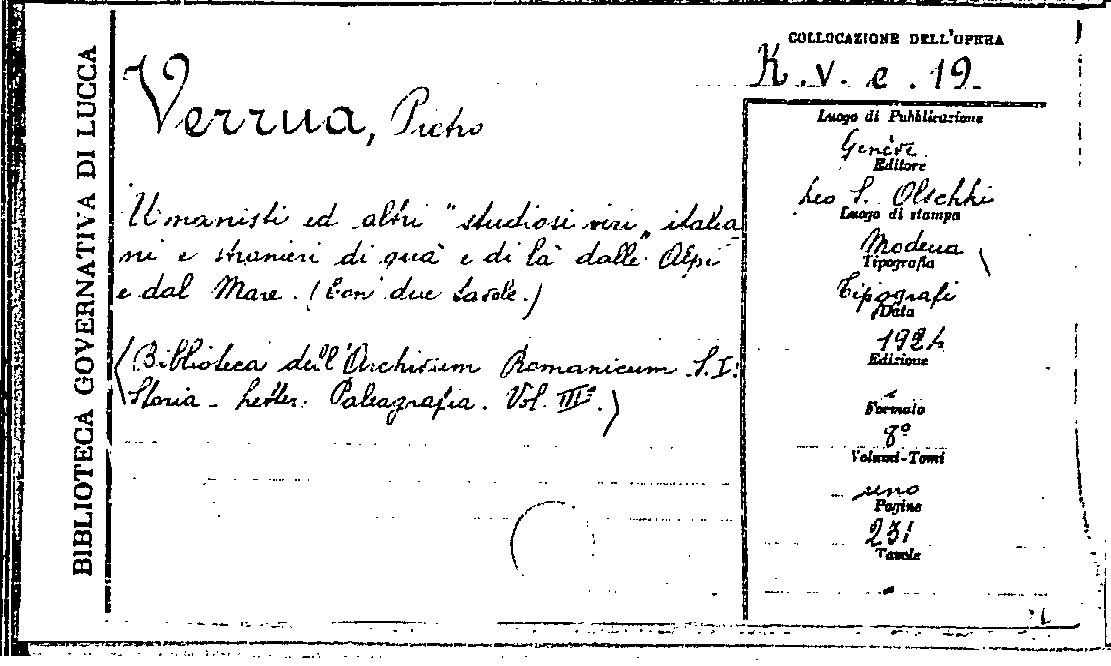 BIBLIOTECA GOVERNATIVA DI LUCCA
Verrua, Pietro
Umanisti ed altri "studiosi viri" italia-
ni e stranieri di quà e di là dalle Alpi
e dal Mare. (Con due tavole.)
(Biblioteca dell'Archivum Romanicum. S.I:
Storia - Letter. Paleografia. Vol. III°.)
COLLOCAZIONE DELL'OPERA
K. v. e. 19.
Luogo di Pubblicazione
Genève.
Editore
Leo S. Olschki
Luogo di stampa
Modena
Tipografia
Tipografi
Data
1924
Edizione
Formato
8°
Volumi-Tomi
uno
Pagine
231
Tavole